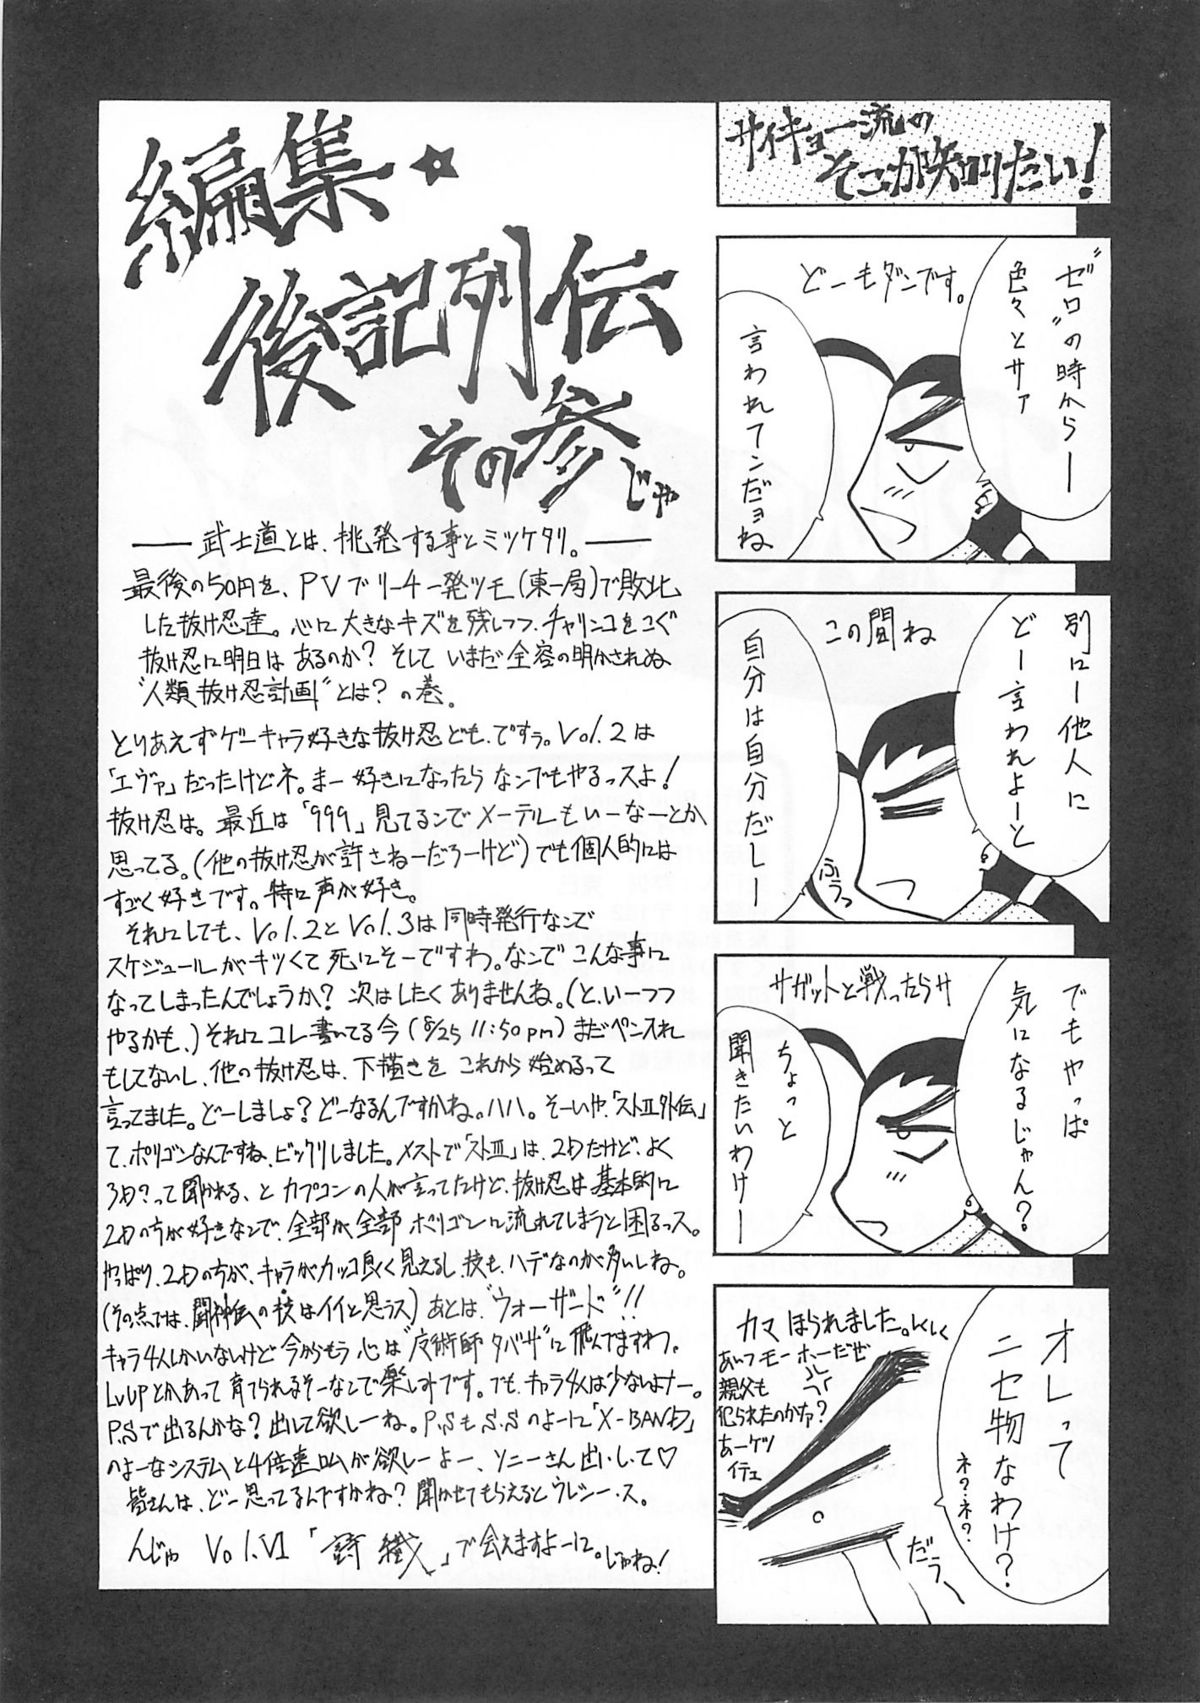 編集☆
後記列伝
その参じゃ
――武士道とは、挑発する事とミツケタリ。――
最後の50円を、PVでリーチ一発ツモ(東一局)で敗北
した抜け忍達。心に大きなキズを残しつつ、チャリンコをこぐ
抜け忍に明日はあるのか?そしていまだ全容の明かされぬ
"人類抜け忍計画"とは?の巻。
とりあえずゲーキャラ好きな抜け忍ども、ですぅ。Vol.2は
「エヴァ」だったけどネ。まー好きになったらなんでもやるっスよ!
抜け忍は。最近は「999」見てるンでメーテルもいーなーとか
思ってる。(他の抜け忍が許さねーだろーけど)でも個人的には
すごく好きです。特に声が好き。
それにしても、Vol.2とVol.3は同時発行なンで
スケジュールがキツくて死にそーですわ。なンでこんな事に
なってしまったんでしょうか?次はしたくありませんね。(と、いーつつ
やるかも、)それにコレ書いてる今(8/25 11:50pm)まだペン入れ
もしてないし、他の抜け忍は、下描きをこれから始めるって
言ってました。どーしましょ?どーなるんですかね。ハハ。そーいや、「ストⅡ外伝」
て、ポリゴンなんですね、ビックリしました。メストで「ストⅢ」は、2Dだけど、よく
3D?って聞かれる、とカプコンの人が言ってたけど、抜け忍は基本的に
2Dの方が好きなンで、全部が全部ポリゴンに流れてしまうと困るっス。
やっぱり、2Dの方が、キャラがカッコ良く見えるし、技も、ハデなのが多いしね。
(その点では、闘神伝の技はイイと思うっス)あとは、"ウォーザード"!!
キャラ4人しかいないけど今からもう心は"魔術師タバサ"に飛んでますわ。
LvUPとかあって育てられるそーなンで楽しみです。でも、キャラ4人は少ないよナー。
P.Sで出るんかな?出して欲しーね。P.SもS.Sのよーに「X-BAND」
のよーなシステムと4倍速ロムが欲しーよー、ソニーさん出して♡
皆さんは、どー思ってるんですかね?聞かせてもらえるとウレシー・ス。
んじゃ Vol.Ⅵ「」で会えますよーに。じゃね!
サイキョー流の
そこが知りたい!
どーもダンです。
"ゼロ"の時からー
色々とサァ
言われてンだョね
この間ね
別にー他人に
どー言われよーと
自分は自分だしー
ふうっ
サガットと戦ったらサ
でもやっぱ
気になるじゃん?
ちょっと
聞きたいわけー
カマほられました。しくしく
あいつモーホーだぜ
親父も
犯られたのかナァ?
あーケツ
イテェ
オレって
ニセ物なわけ?
ネ?ネ?
だうー